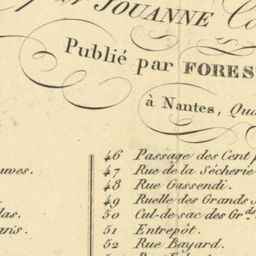 JOUANNE
Publié par FORES
à Nantes, Qua
46 Passage des Cent
47 Rue de la Sécherie
48 Rue Gassendi.
49 Ruelle des Grands
50 Cul-de-sac des Gr.ds
51 Entrepôt.
52 Rue Bayard.